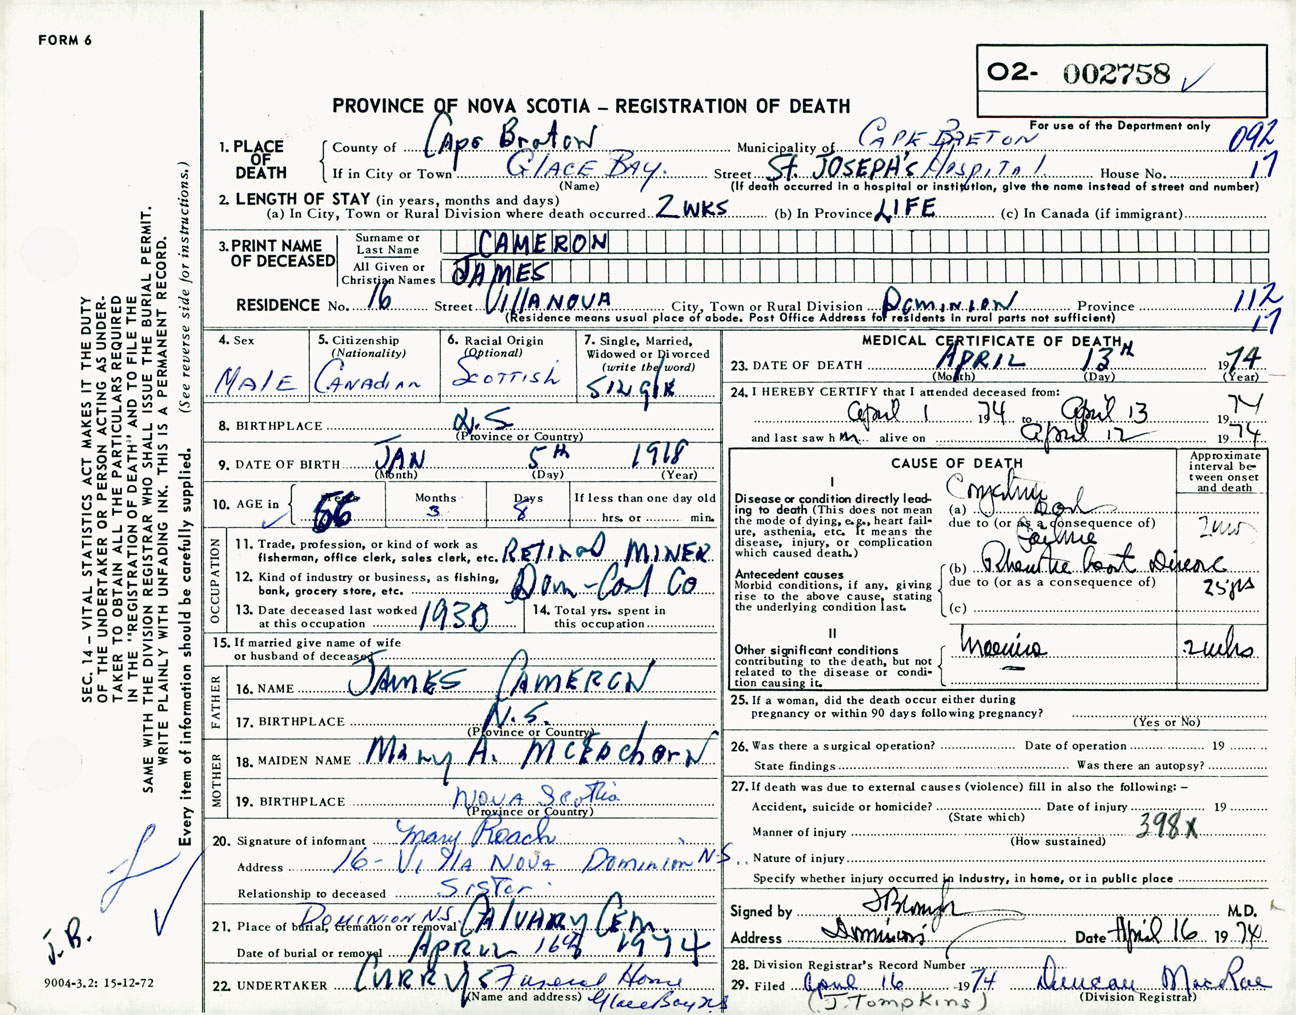 FORM 6
O2- 002758
PROVINCE OF NOVA SCOTIA – REGISTRATION OF DEATH
For use of the Department only
092
17
1. PLACE OF DEATH
County of Cape Breton Municipality of CAPE BRETON
If in City or Town GLACE BAY. Street ST. JOSEPH'S Hospital House No.
(Name) (If death occurred in a hospital or institution, give the name instead of street and number)
2. LENGTH OF STAY (in years, months and days)
(a) In City, Town or Rural Division where death occurred 2 WKS (b) In Province LIFE (c) In Canada (if immigrant)
3. PRINT NAME OF DECEASED
Surname or Last Name CAMERON
All Given or Christian Names JAMES
RESIDENCE No. 16 Street VILLANOVA City, Town or Rural Division DOMINION Province 112
17
(Residence means usual place of abode. Post Office Address for residents in rural parts not sufficient)
4. Sex
MALE
5. Citizenship (Nationality)
CANADIAN
6. Racial Origin (Optional)
SCOTTISH
7. Single, Married, Widowed or Divorced (write the word)
SINGLE
8. BIRTHPLACE N.S
(Province or Country)
9. DATE OF BIRTH JAN 5th 1918
(Month) (Day) (Year)
10. AGE in
Years 56
Months 3
Days 8
If less than one day old
hrs. or min.
OCCUPATION
11. Trade, profession, or kind of work as fisherman, office clerk, sales clerk, etc. RETIRED MINER
12. Kind of industry or business, as fishing, bank, grocery store, etc. Dom-Coal Co
13. Date deceased last worked at this occupation 1930
14. Total yrs. spent in this occupation
15. If married give name of wife or husband of deceased
FATHER
16. NAME JAMES CAMERON
17. BIRTHPLACE N.S.
(Province or Country)
MOTHER
18. MAIDEN NAME Mary A. McEachern
19. BIRTHPLACE NOVA Scotia
(Province or Country)
20. Signature of informant Mary Roach
Address 16- Villa Nova Dominion N-S
Relationship to deceased Sister
DOMINION N.S.
21. Place of burial, cremation or removal CALVARY CEM.
Date of burial or removal APRIL 16th 1974
22. UNDERTAKER CURRY'S Funeral Home
(Name and address) Glace Bay N.S
MEDICAL CERTIFICATE OF DEATH
23. DATE OF DEATH APRIL 13th 1974
(Month) (Day) (Year)
24. I HEREBY CERTIFY that I attended deceased from:
April 1 1974 to April 13 1974
and last saw him alive on April 12 1974
CAUSE OF DEATH
Approximate interval between onset and death
I
Disease or condition directly leading to death (This does not mean the mode of dying, e.g., heart failure, asthenia, etc. It means the disease, injury, or complication which caused death.)
(a) Congestive Heart Failure
due to (or as a consequence of)
Antecedent causes
Morbid conditions, if any, giving rise to the above cause, stating the underlying condition last.
(b) Rheumatic heart Disease 25 yrs
due to (or as a consequence of)
(c)
II
Other significant conditions
contributing to the death, but not related to the disease or condition causing it.
2 wks
25. If a woman, did the death occur either during pregnancy or within 90 days following pregnancy?
(Yes or No)
26. Was there a surgical operation? Date of operation 19
State findings Was there an autopsy?
27. If death was due to external causes (violence) fill in also the following: –
Accident, suicide or homicide? Date of injury 19
(State which)
398X
Manner of injury
(How sustained)
Nature of injury
Specify whether injury occurred in industry, in home, or in public place
Signed by M.D.
Address Dominion Date April 16 1974
28. Division Registrar's Record Number
29. Filed April 16 1974 Duncan MacRae
(J. Tompkins) (Division Registrar)
SEC. 14 – VITAL STATISTICS ACT MAKES IT THE DUTY
OF THE UNDERTAKER OR PERSON ACTING AS UNDER-
TAKER TO OBTAIN ALL THE PARTICULARS REQUIRED
IN THE "REGISTRATION OF DEATH" AND TO FILE THE
SAME WITH THE DIVISION REGISTRAR WHO SHALL ISSUE THE BURIAL PERMIT.
WRITE PLAINLY WITH UNFADING INK. THIS IS A PERMANENT RECORD.
Every item of information should be carefully supplied. (See reverse side for instructions.)
J.B.
9004-3.2: 15-12-72